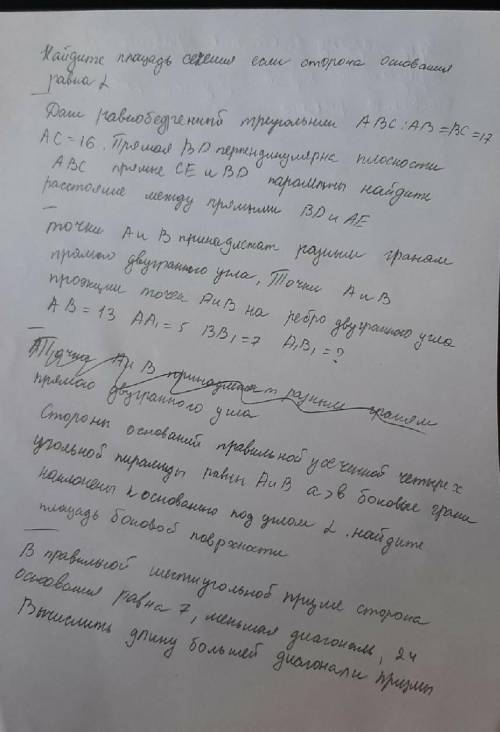 Найдите площадь сечения если сторона основания
равна 2
Дан равнобедренный треугольник ABC: AB = BC = 17
AC = 16. Прямая BD перпендикулярна плоскости
ABC прямые CE и BD параллельны найдите
расстояние между прямыми BD и AE
точки A и B принадлежат разным граням
прямого двугранного угла, Точки A и B
проэкции точек A и B на ребро двугранного угла
AB = 13 AA₁ = 5 BB₁ = 7 A₁B₁ = ?
Точки A и B принадлежат разным граням
прямого двугранного угла
Стороны оснований правильной усеченной четырех
угольной пирамиды равны A и B a > b боковые грани
наклонены к основанию под углом α. найдите
площадь боковой поврхности
В правильной шестиугольной призме сторона
основания равна 7, меньшая диагональ, 24
Вычислить длину большей диагонали призмы